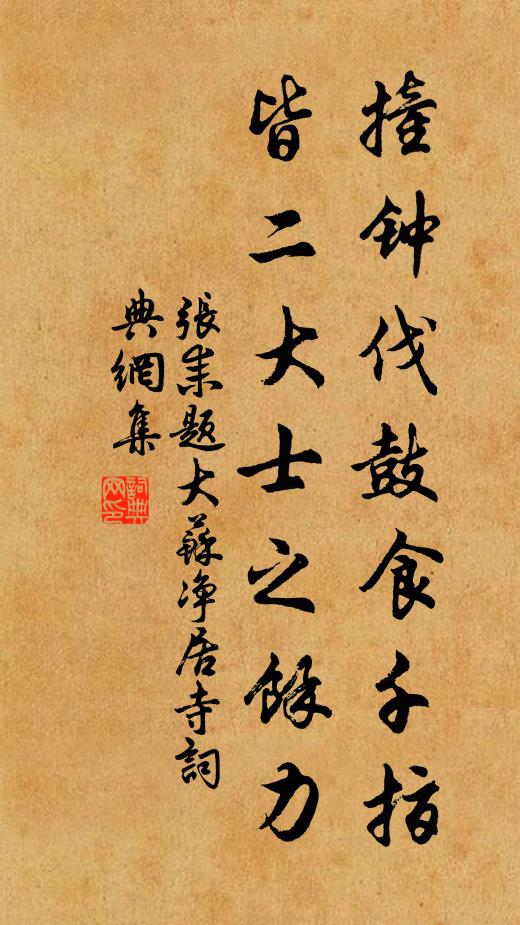 撞钟伐鼓食千指
皆二大士之餘力
張耒題大蘇净居寺詞
典網集
詞典網印